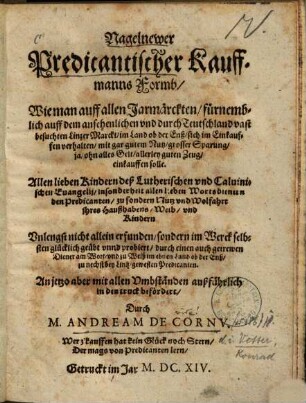 Nagelnewer
Predicantischer Kauff-
manns Formb/
Wie man auff allen Jarmärckten/ fürnemb-
lich auff dem ansehenlichen vnd durch Teutschland vast
besuchten Lintzer Marckt/ im Land ob der Enß/ sich im Einkauf-
fen verhalten/ mit gar gutem Nutz/ grosser Sparung/
ja/ ohn alles Gelt/ allerley guten Zeug/
einkauffen solle.
Allen lieben Kindern deß Lutherischen vnd Caluini-
schen Euangelij/ insonderheit allen lieben Worts dienern
den Predicanten/ zu sondern Nutz vnd Wolfahrt
ihres Haußhabens/ Weib/ vnd
Kindern
Vnlengst nicht allein erfunden/ sondern im Werck selb-
sten glücklich geübt vnnd probiert/ durch einen auch getrewen
Diener am Wort/
zu nechst bey Lintz gewesten Predicanten.
An jetzo aber mit allen Vmbständen außführlich
in den truck befördert/
Durch
M. ANDREAM DE CORNV,
Wer z'kauffen hat kein Glück noch Stern/
Der mags von Predicanten lern/
Getruckt im Jar M. DC. XIV.
Konrad